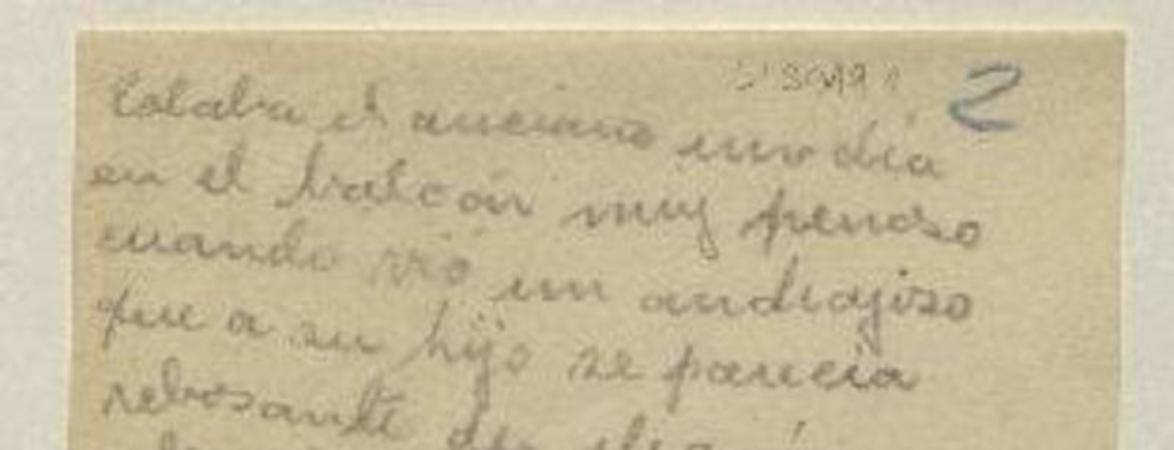 2
Estaba el anciano uno dia
en el balcón muy penoso
cuando vió un andrajoso
que a su hijo se parecia
rebosante